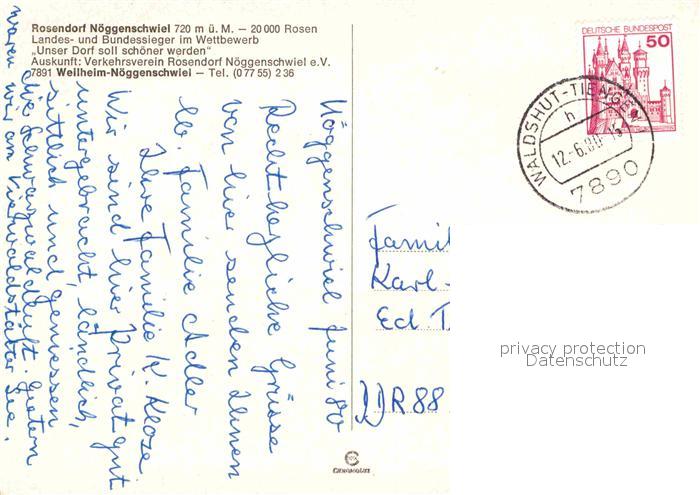 Rosendorf Nöggenschwiel 720 m ü. M. — 20 000 Rosen
Landes- und Bundessieger im Wettbewerb
„Unser Dorf soll schöner werden"
Auskunft: Verkehrsverein Rosendorf Nöggenschwiel e.V.
7891 Weilheim-Nöggenschwiel — Tel. (0 77 55) 2 36
Nöggenschwiel Juni 80
Recht herzliche Grüsse
von hier senden Ihnen
lb. Familie Adler
Ihre Familie K. Kloze
Wir sind hier Privat gut
untergebracht, ländlich,
sittlich und geniessen
die Schwarzwaldluft. Gestern
waren wir am Vierwaldstätter See.
DEUTSCHE BUNDESPOST
50
WALDSHUT-TIENGEN
h
12.-6.80.-15
7890
Famil
Karl-
Ed. T
DDR 88
privacy protection
Datenschutz